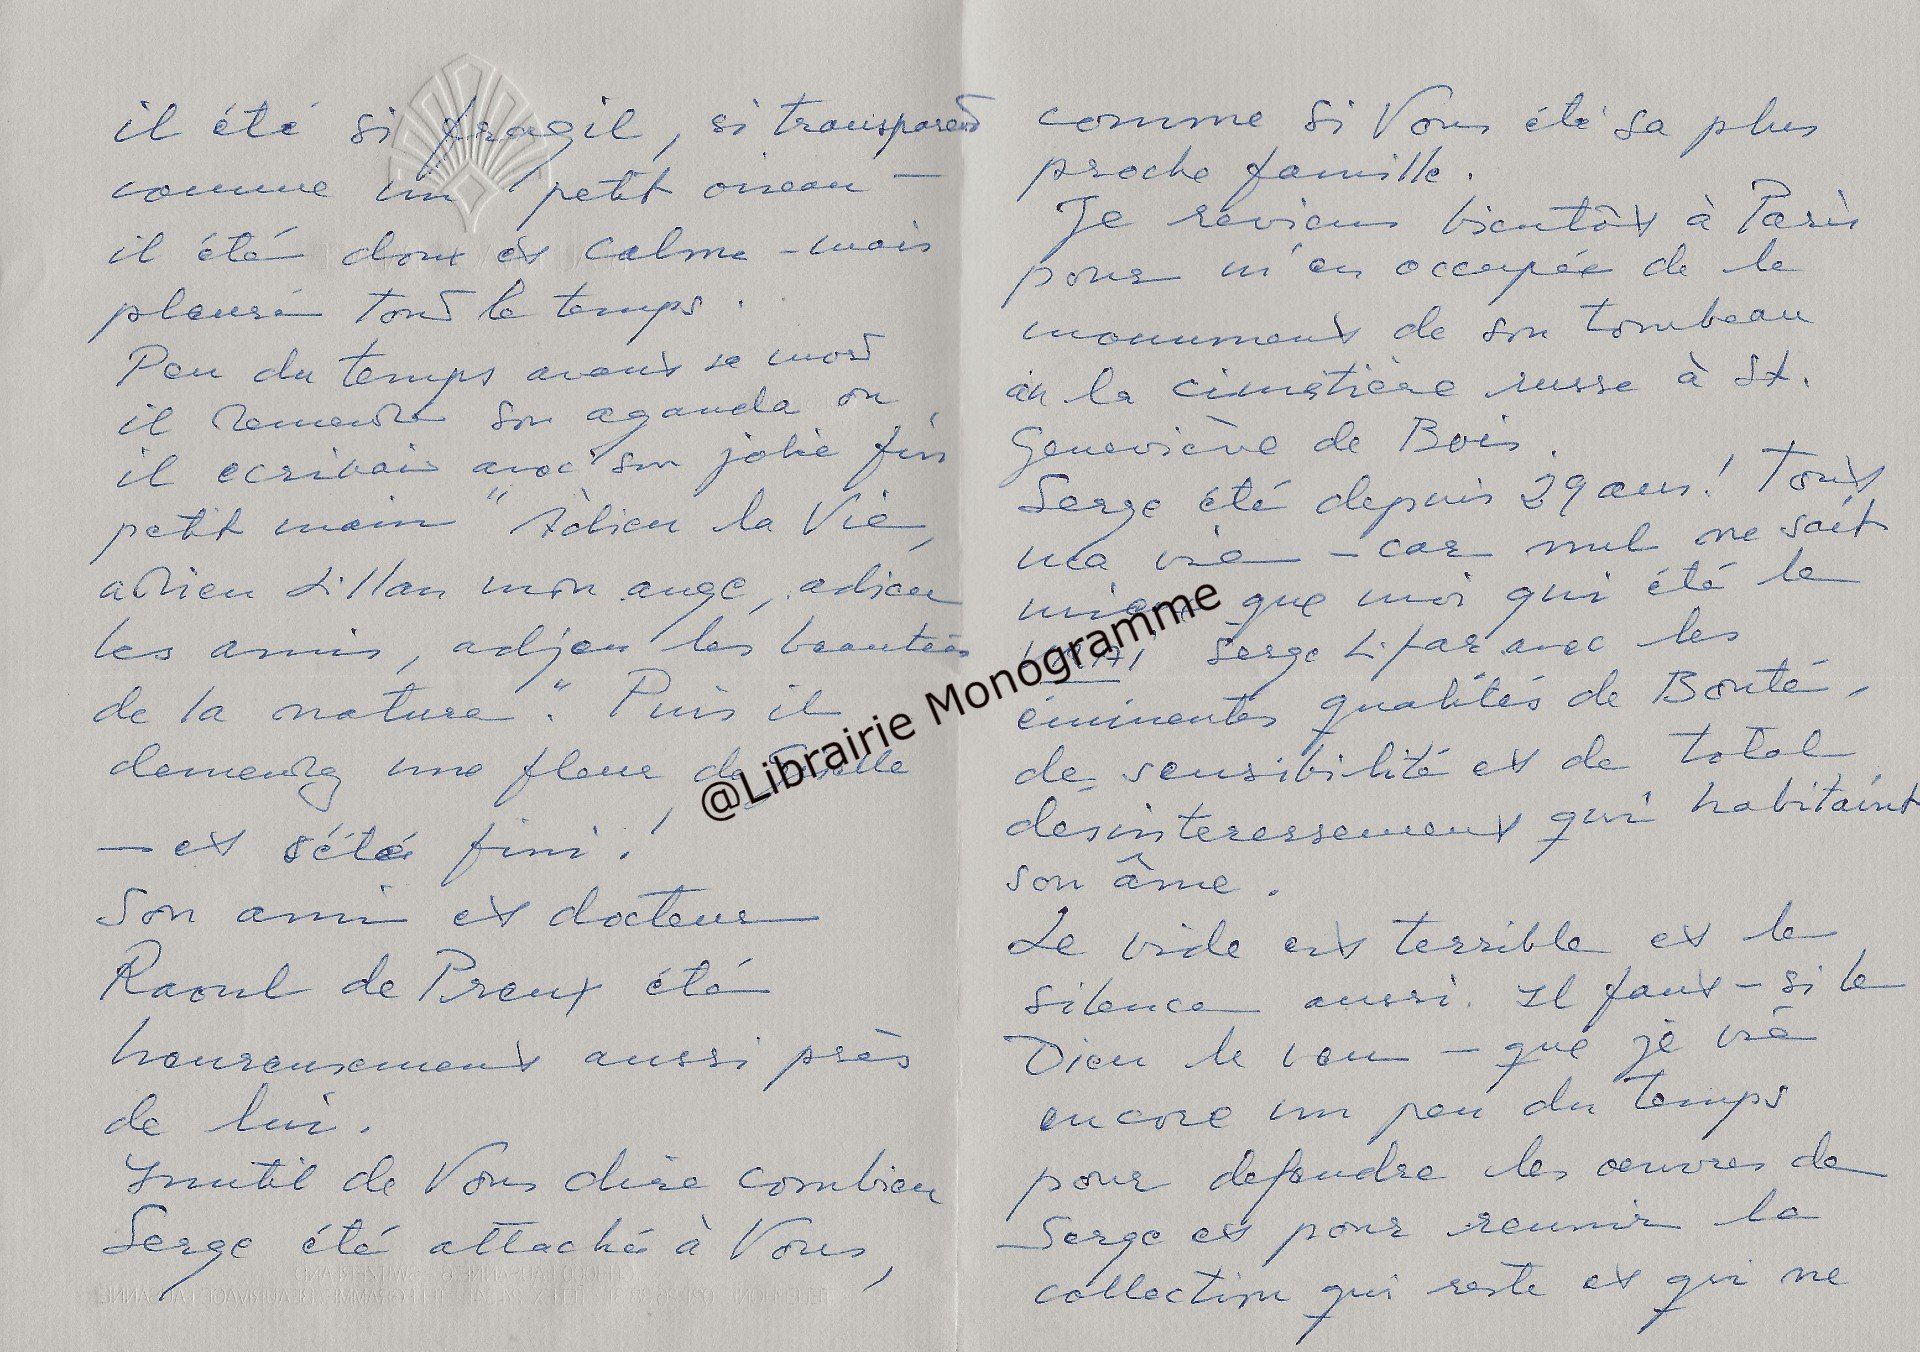 il été si fragil, si transparent
comme un petit oiseau —
il été doux et calme - mais
pleuré tout le temps.
Peu du temps avant sa mort
il demende son aganda ou
il ecrivais avec son jolie fin
petit main "Adieu la Vie,
adieu Lillan mon ange, adieu
les amis, adjeu les beautées
de la nature." Puis il
demende une fleur, de
— et s'été fini!
Son ami et docteur
Raoul de Preux été
heureusement aussi près
de lui.
Inutil de Vous dire combien
Serge été attaché à Vous,
comme si Vous été sa plus
proche famille.
Je reviens bientôt à Paris
pour m'en occupée de le
monument de son tombeau
an la cimetière russe à St.
Geneviève de Bois.
Serge été depuis 29 ans! Tout
ma vie — car nul ne sait
mieux que moi qui été le
Serge Lifar avec les
éminentes qualités de Bonté,
de sensibilité et de total
desinteressement qui habitaint
son âme.
Le vide est terrible et le
silence aussi. Il faut - si le
Dieu le veu — que je vie
encore un peu du temps
pour defendre les œuvres de
Serge et pour reunir la
collection qui reste et qui ne
@Librairie Monogramme